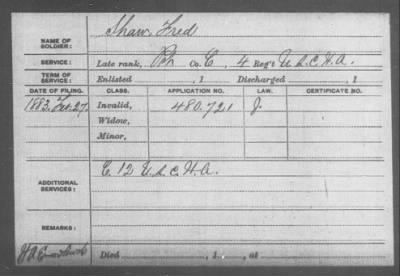 NAME OF SOLDIER: Shaw, Fred
SERVICE: Late rank, Pvt Co. C, 4 Reg't U.S.C.H.A.
TERM OF SERVICE: Enlisted , 1 Discharged , 1
DATE OF FILING. CLASS. APPLICATION NO. LAW. CERTIFICATE NO.
1883, Feb. 27. Invalid, 480.721 J.
Widow,
Minor,
ADDITIONAL SERVICES: C 12 U.S.C.H.A.
REMARKS:
Died , 1 , at